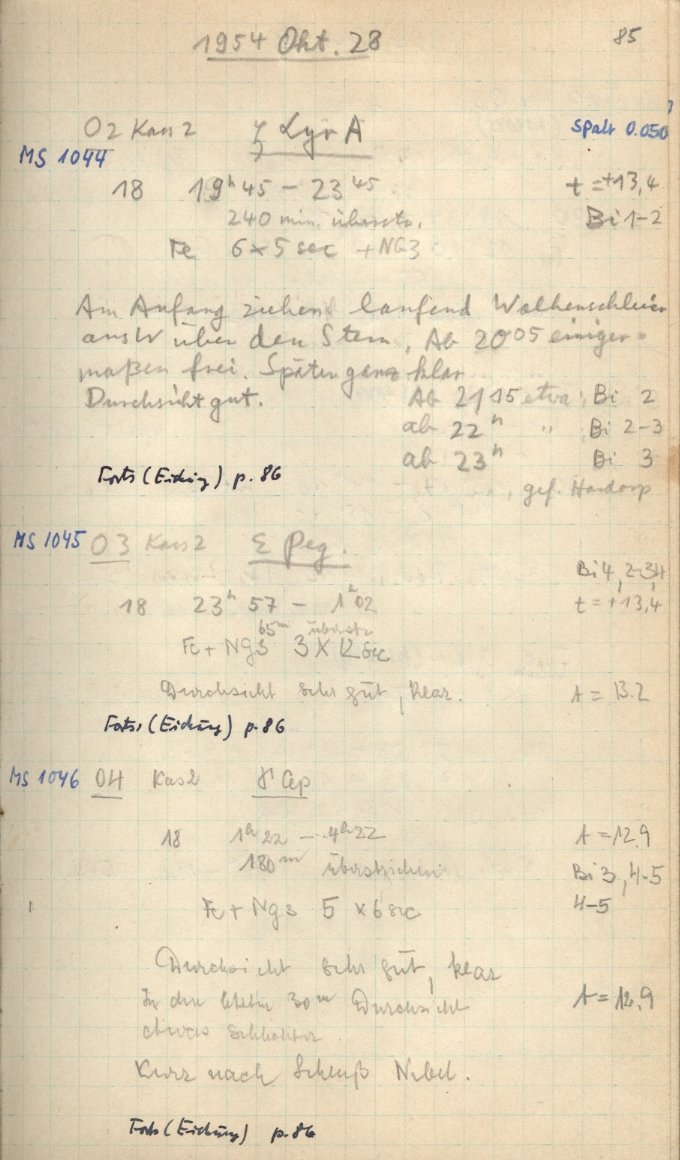 1954 Okt. 28
85
O2 Kas 2 ζ Lyr A
Spalt 0.050
MS 1044
18 19h 45 – 23 45
t = +13,4
240 min. überstr.
Bi 1-2
Fe 6 × 5 sec + NG3
Am Anfang ziehen laufend Wolkenschleier
aus W über den Stern. Ab 20 05 einiger-
maßen frei. Später ganz klar
Durchsicht gut.
Ab 21 15 etwa Bi 2
ab 22h " Bi 2-3
ab 23h Bi 3
Forts (Eichung) p. 86
gef. Hardorp
MS 1045 O3 Kas 2 ε Peg.
Bi 4, 2-3,4
18 23h 57 – 1h 02
t = +13,4
65m überstr.
Fe + NG3 3 × 12 sec
Durchsicht sehr gut, klar.
t = 13.2
Forts. (Eichung) p. 86
MS 1046 O4 Kas 2
18 1h 22 – 4h 22
t = 12.9
180m überstrichen
Bi 3, 4-5
Fe + Ng3 5 × 6 sec
4-5
Durchsicht sehr gut, klar
In den letzten 30m Durchsicht
t = 12.9
etwas schlechter.
Kurz nach Schluß Nebel.
Forts (Eichung) p. 86